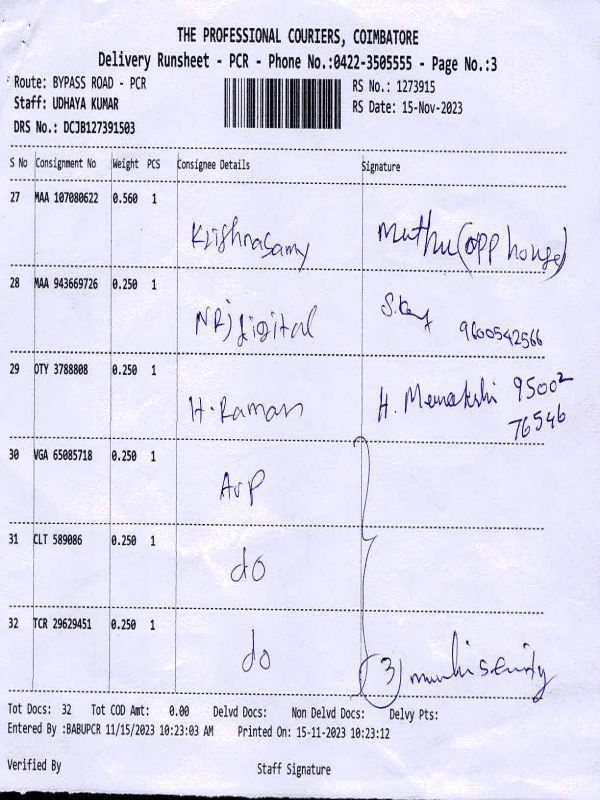 THE PROFESSIONAL COURIERS, COIMBATORE
Delivery Runsheet - PCR - Phone No.:0422-3505555 - Page No.:3
Route: BYPASS ROAD - PCR RS No.: 1273915
Staff: UDHAYA KUMAR RS Date: 15-Nov-2023
DRS No.: DCJB127391503
S No Consignment No Weight PCS Consignee Details Signature
27 MAA 107080622 0.560 1
Krishnasamy Muthu (opp house)
28 MAA 943669726 0.250 1
NRJ digital 9600542566
29 OTY 3788808 0.250 1
H. Raman H. Meenakshi 95002
76546
30 VGA 65085718 0.250 1
AVP
31 CLT 589086 0.250 1
do
32 TCR 29629451 0.250 1
do (3)
Tot Docs: 32 Tot COD Amt: 0.00 Delvd Docs: Non Delvd Docs: Delvy Pts:
Entered By :BABUPCR 11/15/2023 10:23:03 AM Printed On: 15-11-2023 10:23:12
Verified By Staff Signature